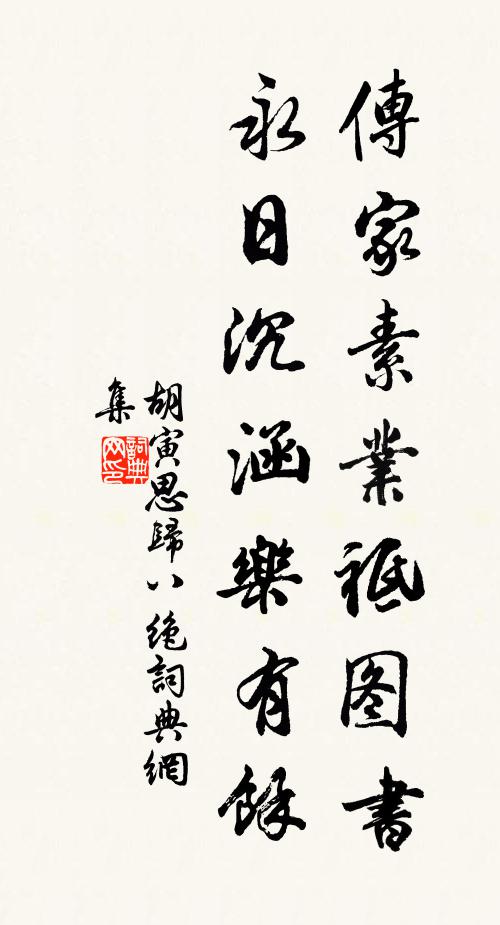 傳家素業祗图書
永日沉涵樂有餘
胡寅思歸八絶詞典網
集
詞典
网印